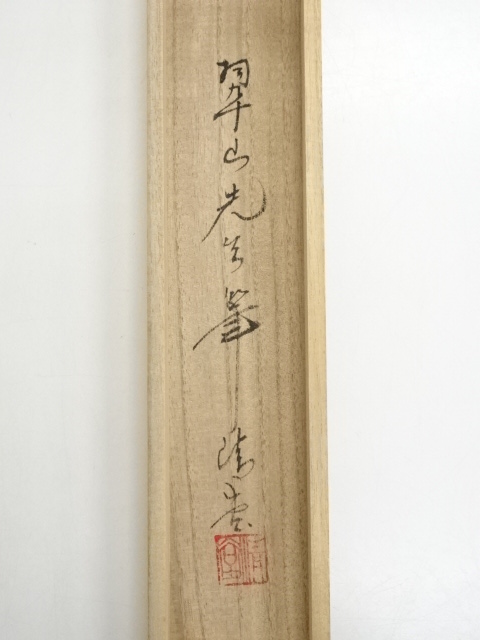 翠山先生筆
清雲